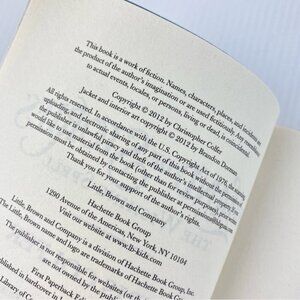 This book is a work of fiction. Names, characters, places, and incidents
the product of the author's imagination or are used fictitiously. Any
to actual events, locales, or persons, living or dead, is coincidental.
Copyright © 2012 by Christopher Colfer
Jacket and interior art copyright © 2012 by Brandon Dorman
All rights reserved. In accordance with the U.S. Copyright Act of 1976, the
uploading, and electronic sharing of any part of this book without the permission
the publisher is unlawful piracy and theft of the author's intellectual property.
would like to use material from the book (other than for review purposes), prior
permission must be obtained by contacting the publisher at
Thank you for your support of the author's rights.
Little, Brown and Company
Hachette Book Group
1290 Avenue of the Americas, New York, NY 10104
Visit our website at www.lb-kids.com
Little, Brown and Company is a division of Hachette Book Group, Inc.
Brown name and logo are trademarks of Hachette Book Group, Inc.
The publisher is not responsible for websites (or
not owned by the publisher.
First Paperback
published in hardcover in
Library of